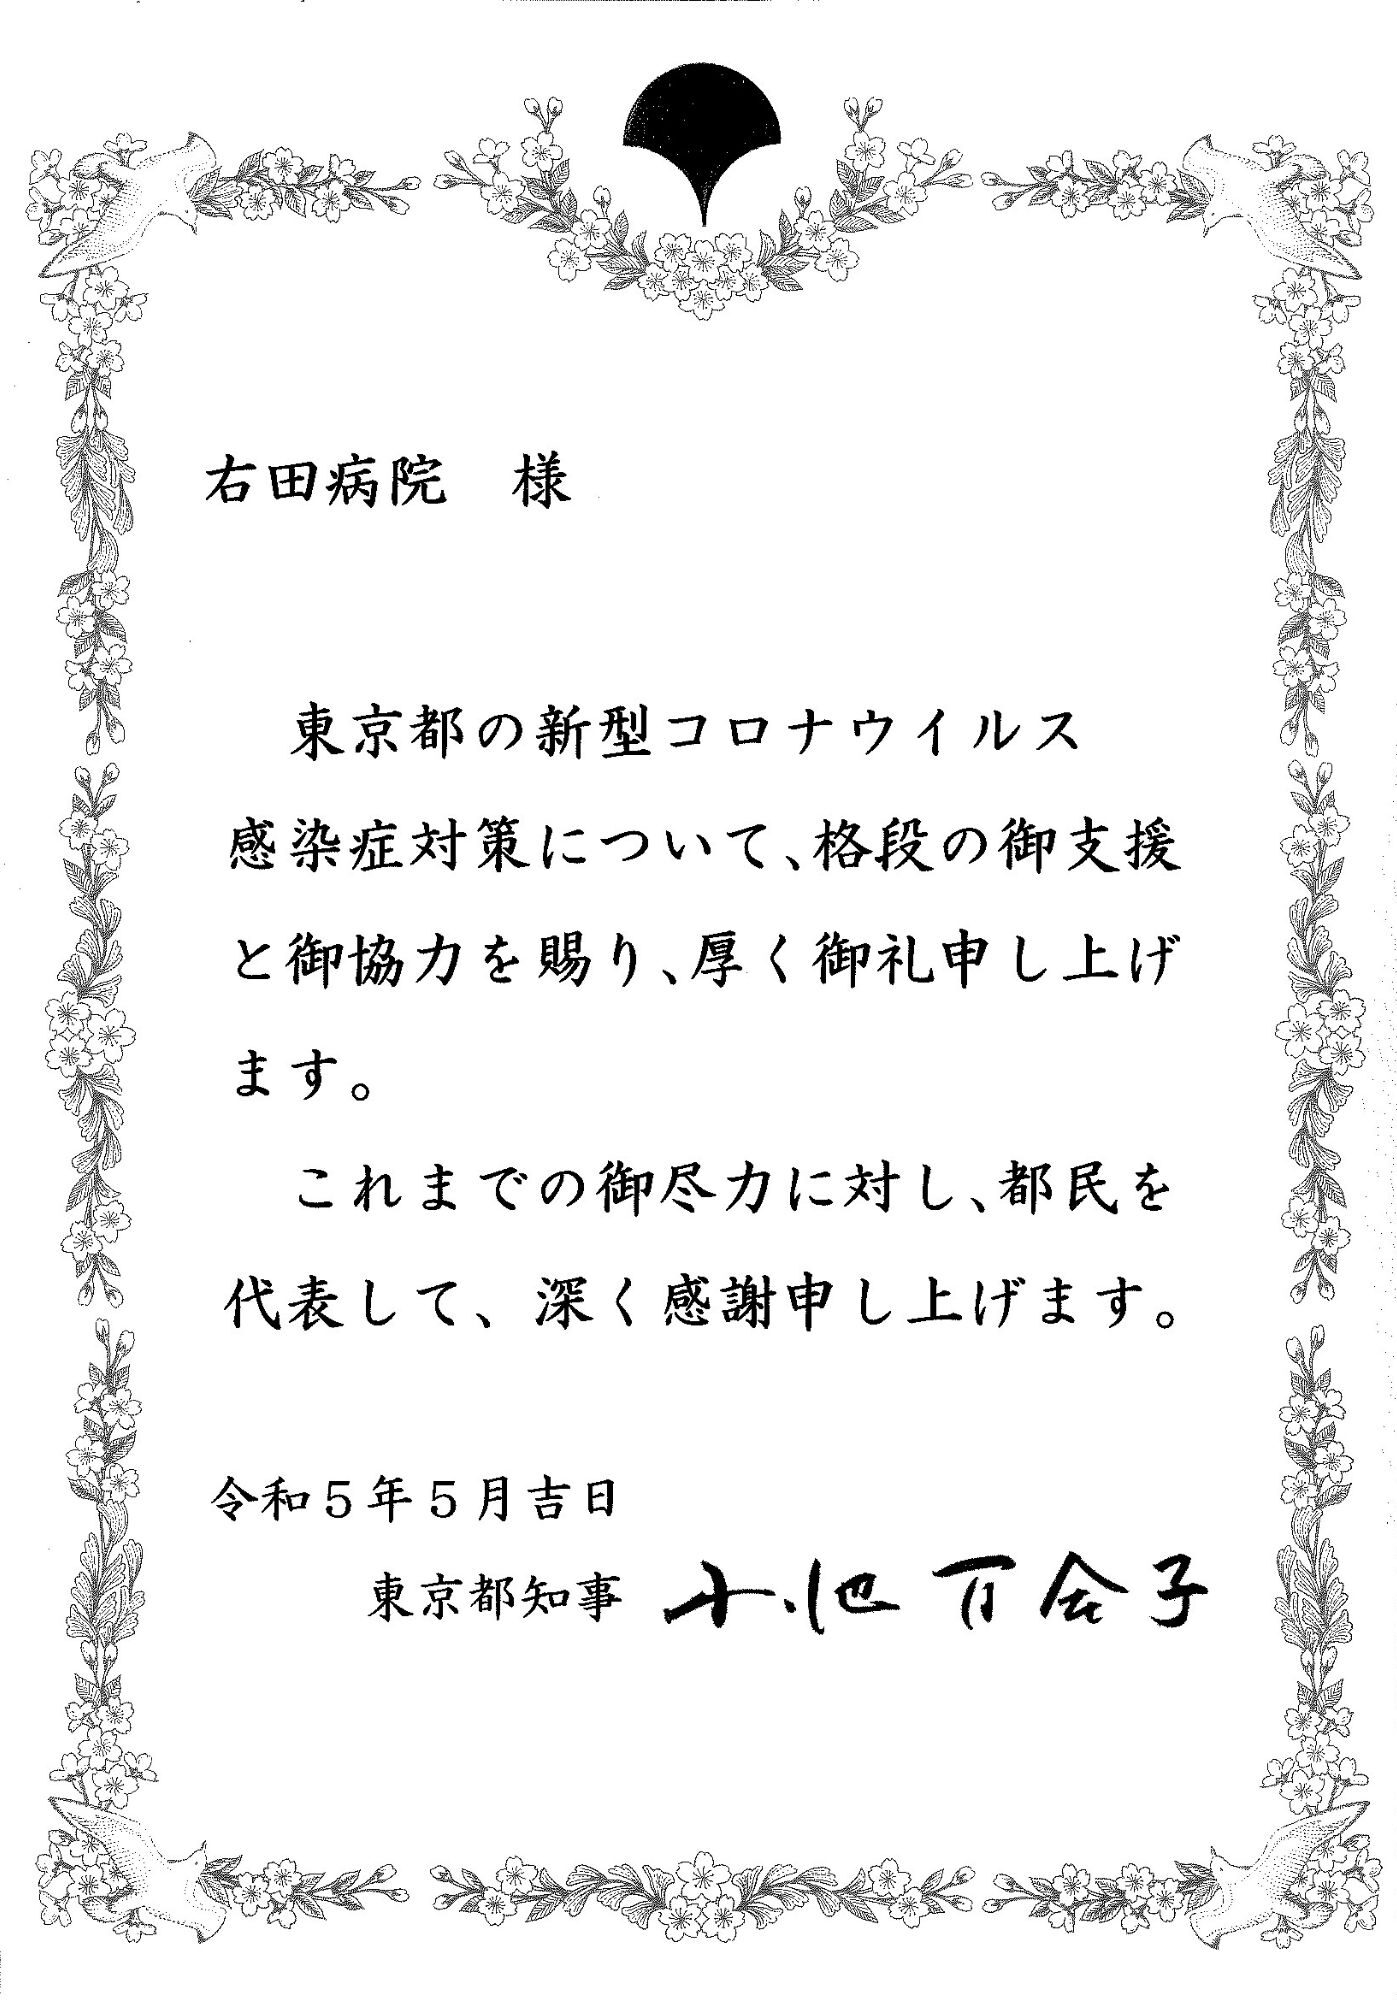 右田病院　様
東京都の新型コロナウイルス
感染症対策について、格段の御支援
と御協力を賜り、厚く御礼申し上げ
ます。
これまでの御尽力に対し、都民を
代表して、深く感謝申し上げます。
令和５年５月吉日
東京都知事　小池百合子